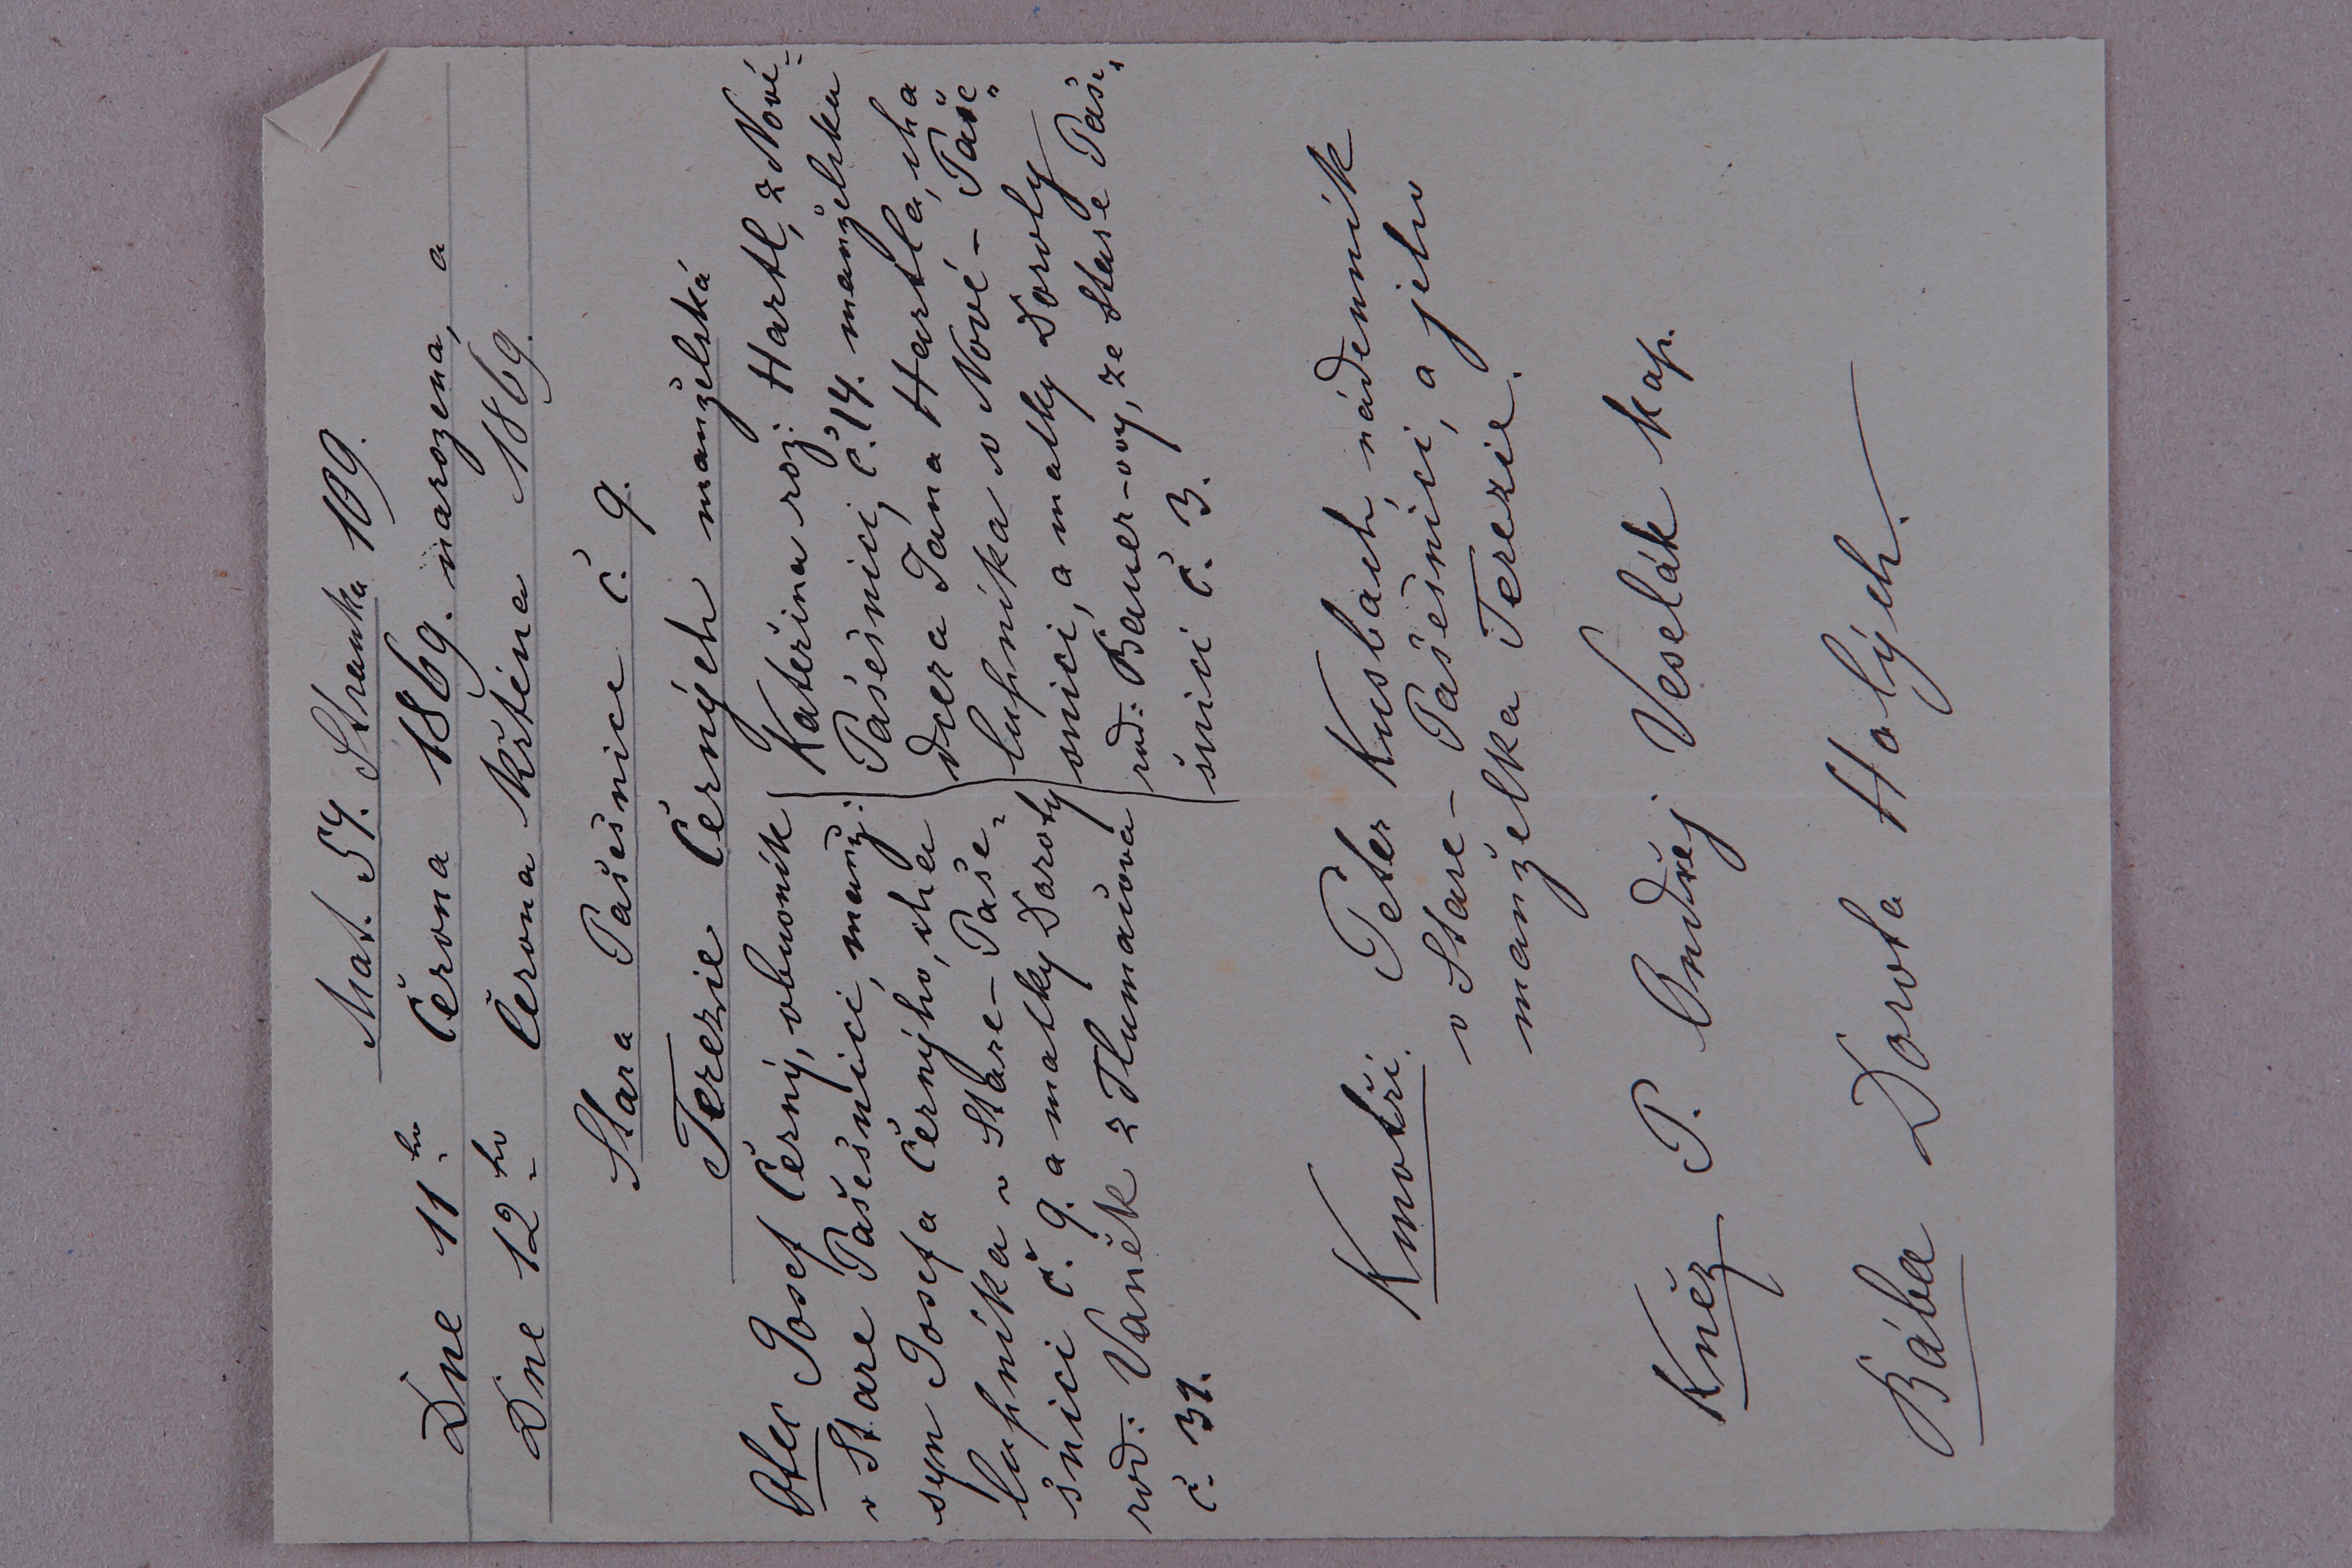 Mat. 54. Stránka 109.
Dne 11ho Června 1869. narozena, a
Dne 12ho Června křtěna 1869.
Stara Pašešnice č. 9.
Terezie Černých manželská
Otec Josef Černý, obuvník
v Stare Pašešnici, manž:
syn Josefa Černýho, cha
lupníka v Stare-Paše-
šnici č. 9. a matky Doroty
rod: Vaněk z Tlumačova
č. 31.
Kateřina roz: Hartl, z Nové-
Pašešnici, č. 14. manželska
dcera Jana Hartla, cha
lupníka v Nové-Paše
šnici, a matky Doroty
rod: Bauer-ový, ze Stare Paše
šnici č. 3.
Kmotři. Peter Kusbach, nádenník
v Stare-Pašešnici, a jeho
manželka Terezie.
Kněz P. Ondřej Veselák kap.
Bába Dorota Holých.